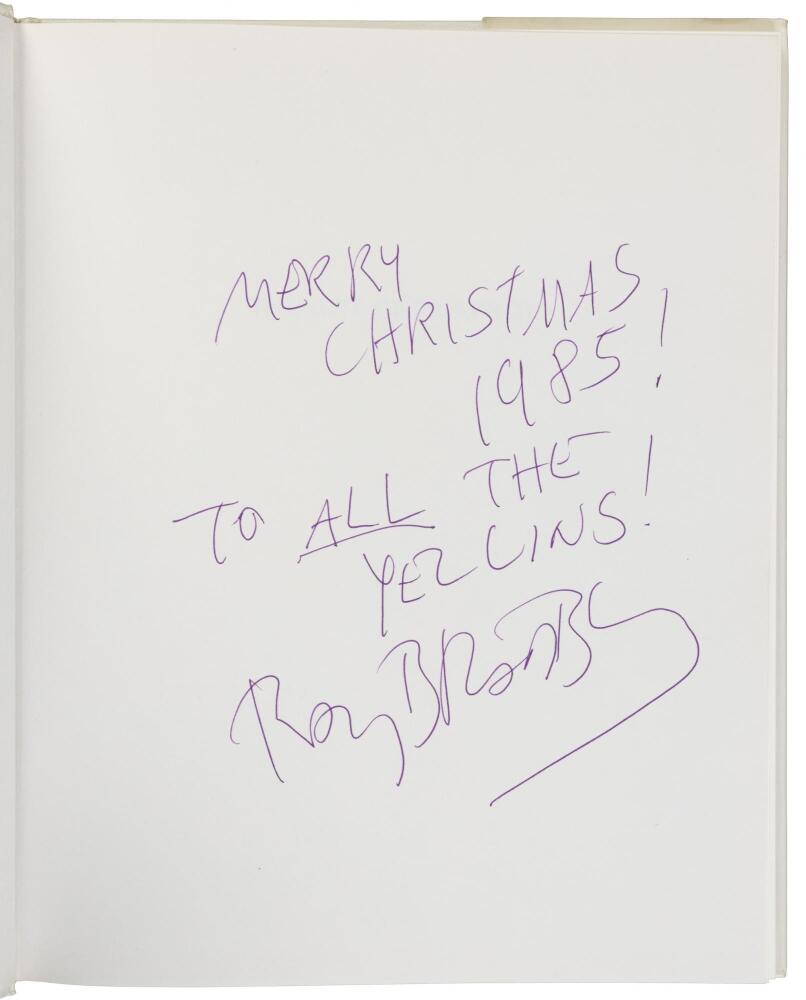 MERRY
CHRISTMAS
1985!
TO ALL THE
YELLINS!
Ray Bradbury